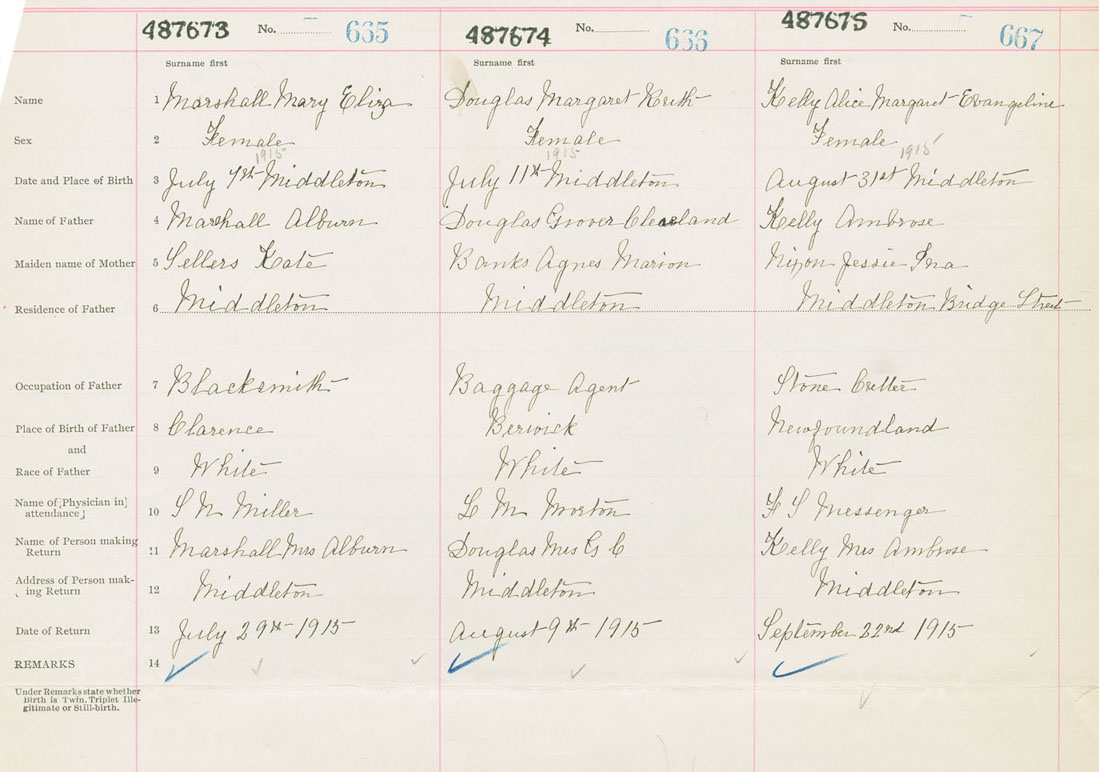 487673 No. 665 487674 No. 666 487675 No. 667
Surname first Surname first Surname first
Name 1 Marshall Mary Eliza Douglas Margaret Ruth Kelly Alice Margaret Evangeline
Sex 2 Female Female Female
1915 1915 1915
Date and Place of Birth 3 July 7th Middleton July 11th Middleton August 31st Middleton
Name of Father 4 Marshall Alburn Douglas Grover Cleveland Kelly Ambrose
Maiden name of Mother 5 Sellers Kate Banks Agnes Marion Nixon Jessie Ina
Residence of Father 6 Middleton Middleton Middleton Bridge Street
Occupation of Father 7 Blacksmith Baggage Agent Stone Cutter
Place of Birth of Father 8 Clarence Berwick Newfoundland
and
Race of Father 9 White White White
Name of [Physician in
attendance] 10 S N Miller L M Morton F S Messenger
Name of Person making
Return 11 Marshall Mrs Alburn Douglas Mrs G C Kelly Mrs Ambrose
Address of Person mak-
ing Return 12 Middleton Middleton Middleton
Date of Return 13 July 29th 1915 August 9th 1915 September 22nd 1915
REMARKS 14
Under Remarks state whether
Birth is Twin, Triplet Ille-
gitimate or Still-birth.